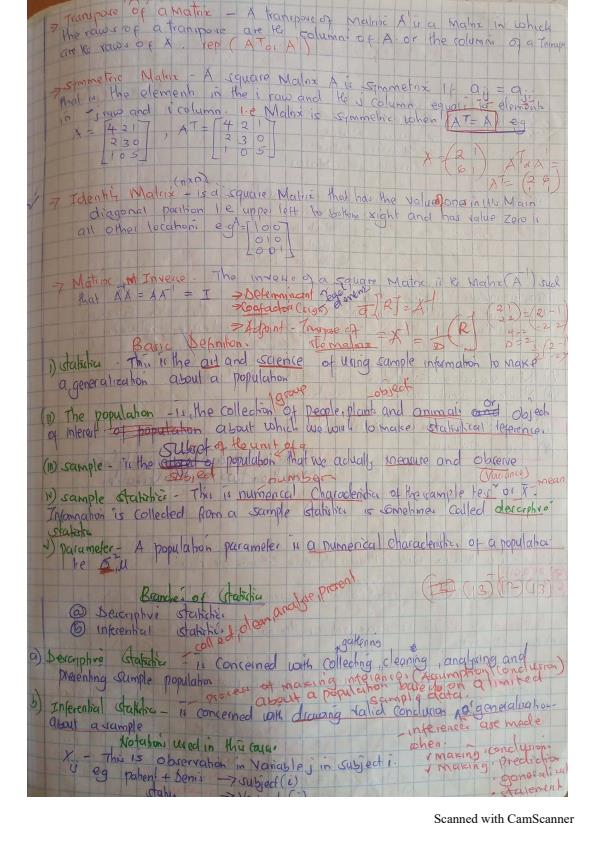 → Transpose of a Matrix - A transpose of Matrix A is a Matrix in which
the rows of a transpose are the columns of A or the columns of a Transp
are the rows of A. rep (AT or A')
→ Symmetric Matrix - A square Matrix A is symmetrix If aij = aji
that is the element in the i raw and the j column equal to element
in j raw and i column. i.e Matrix is symmetric when AT=A eg
A = [4 2 1 , AT = [4 2 1
2 3 0 2 3 0
1 0 5] 1 0 5]
(nxn)
→ Identity Matrix - is a square Matrix that has the value one in the Main
diagonal position i.e upper left to bottom right and has value zero in
all other location. eg A = [1 0 0
0 1 0
0 0 1]
→ Matrix Inverse - The inverse of a square Matrix is the Matrix (A⁻¹) such
that A⁻¹A = AA⁻¹ = I
→ Determinant
→ Cofactor (sign)
→ Adjoint - Transpose of
the matrix = A⁻¹ = 1/D (R)
Basic Definition.
i) Statistics - This is the art and science of using sample information to make
a generalization about a population
group - object
(ii) The population - is the collection of people, plants and animals or object
of interest of population about which we want to make statistical inference.
subset of the unit of a
(iii) sample - is the population that we actually measure and observe
subject number (variance) mean
iv) sample statistics - This is numerical characteristics of the sample
Information is collected from a sample statistics is sometimes called descriptive
statistics
v) parameter - A population parameter is a numerical characteristic of a population
σ², μ
Branches of Statistics
(a) Descriptive statistics
(b) Inferential statistics
- collect, clean, analyse, present
gathering
a) Descriptive statistics - is concerned with collecting, cleaning, analysing and
presenting sample population
- process of making inferences (Assumption, Conclusion)
about a population based on a limited
sample data
b) Inferential statistics - is concerned with drawing valid conclusion generalization
about a sample
- inferences are made
when:
✓ making conclusion
✓ making prediction
• generalizat
• statement
Notations used in this case.
Xij - This is observation in variable j in subject i.
eg patient + Denis → subject (i)
Scanned with CamScanner